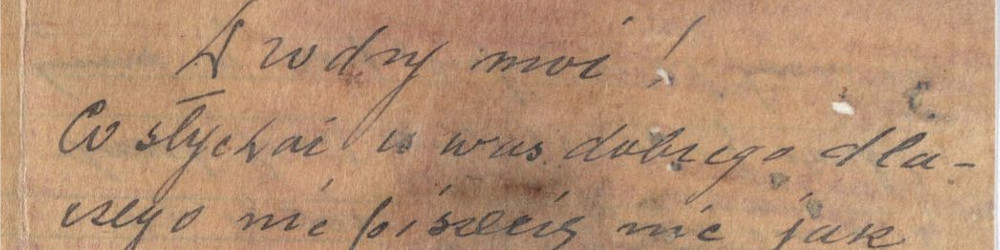 drodzy moi!
Co słychai u was dobrego dla-
czego nic piszecie nic jak